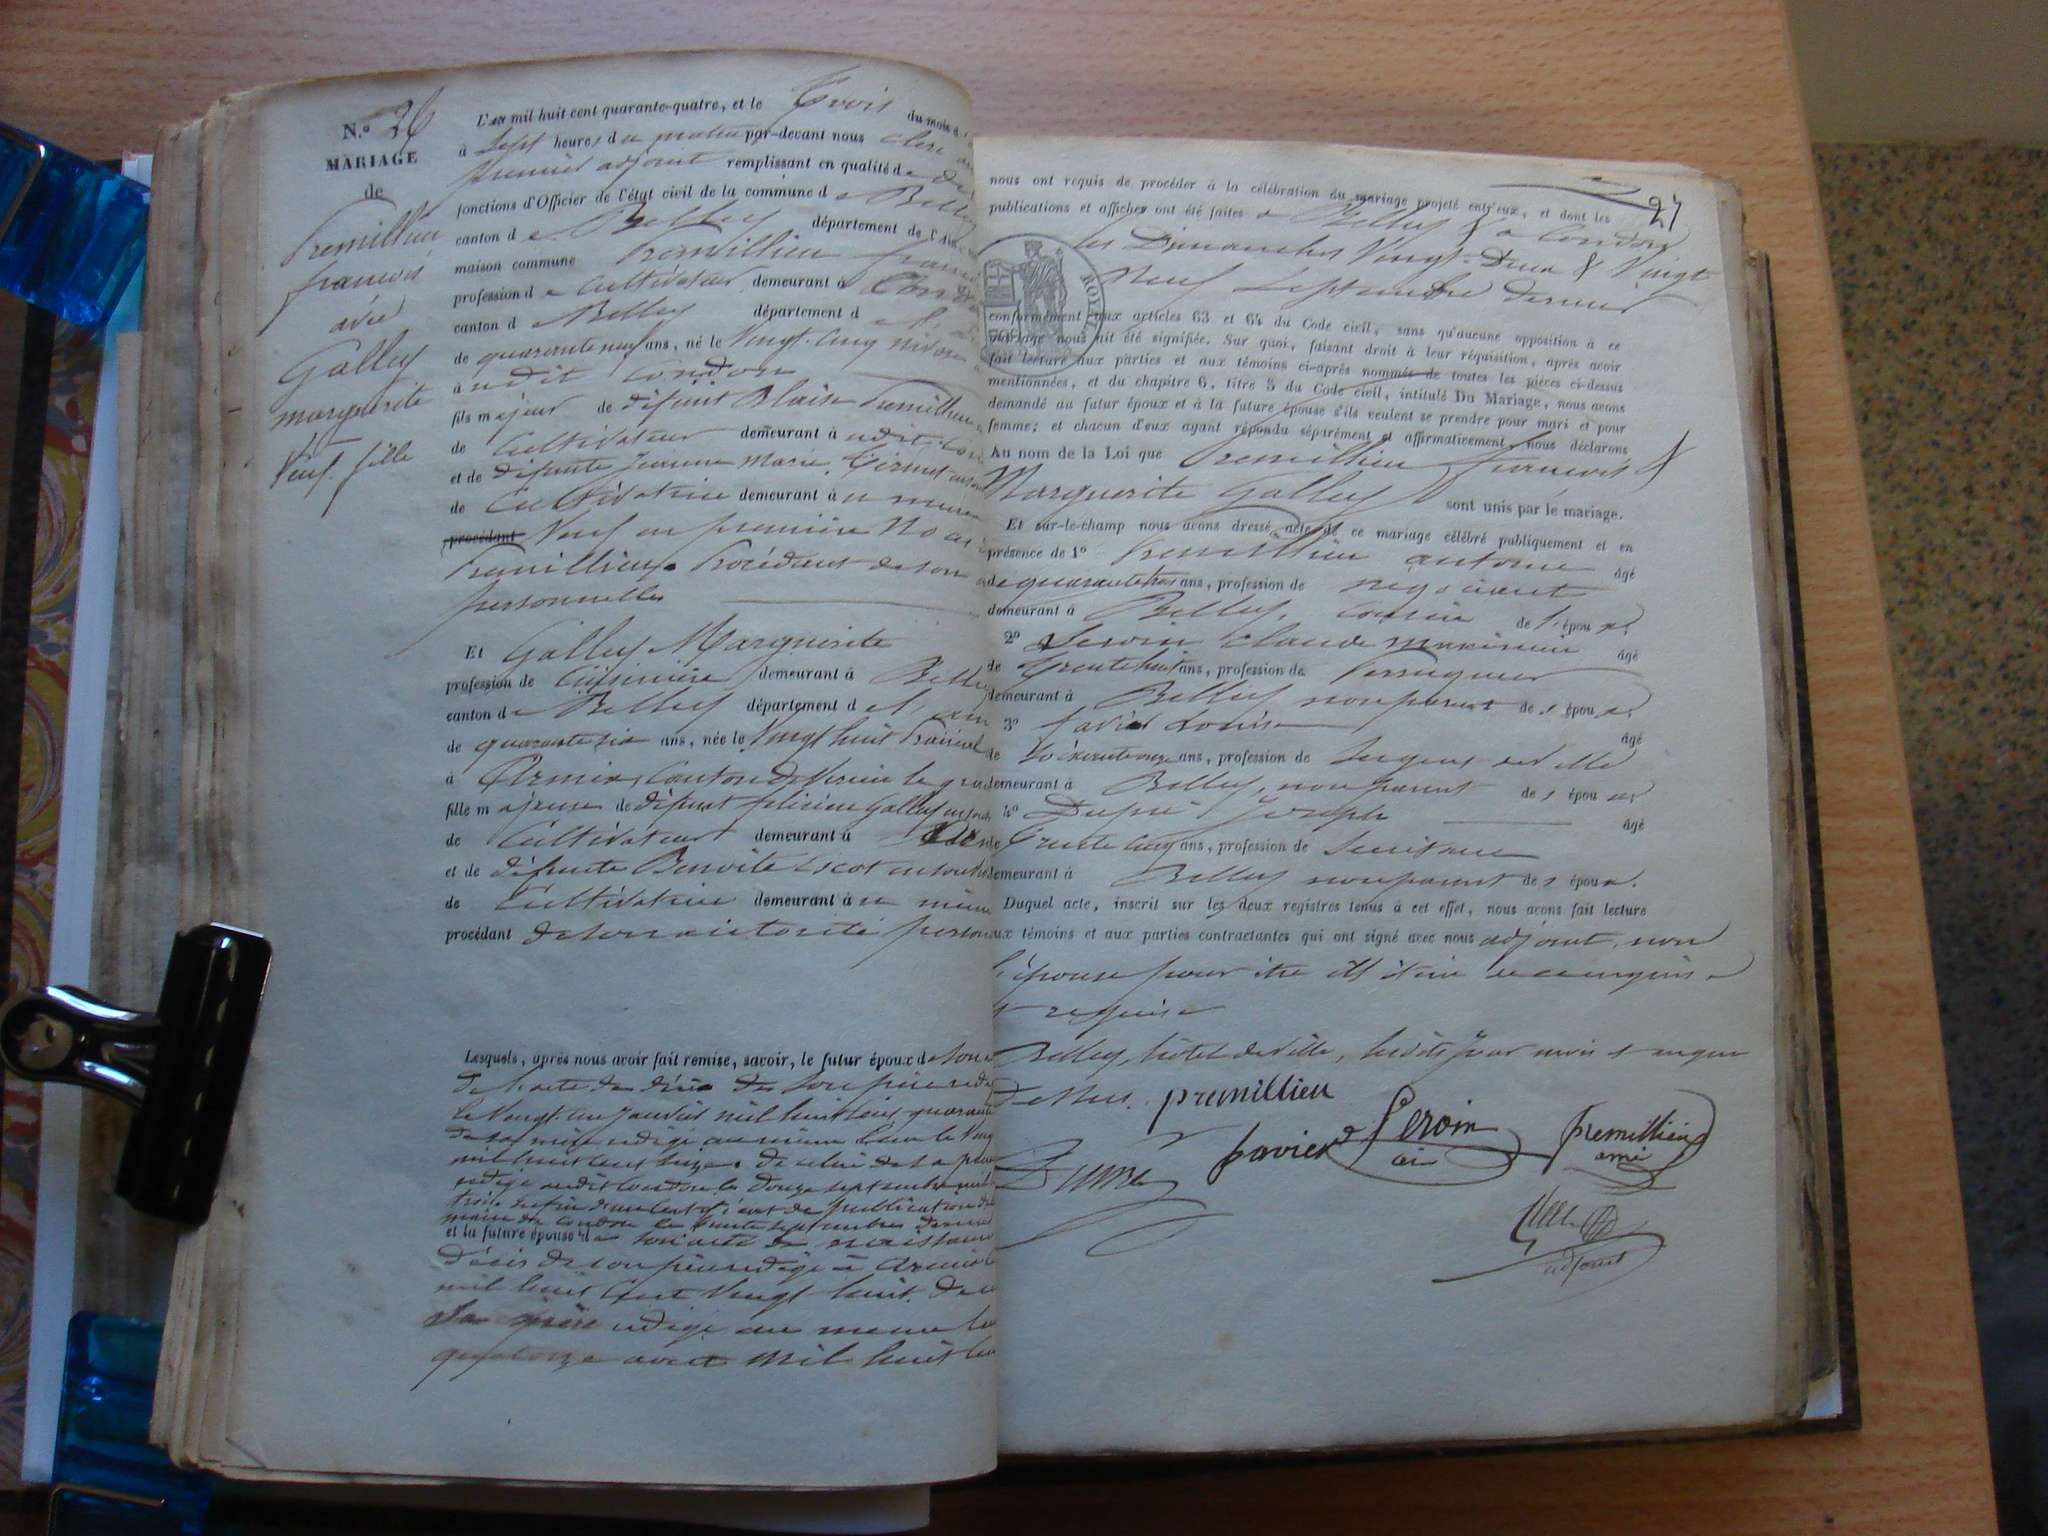 N.º 26
MARIAGE
de
Premillieu
francois
avec
Galley
marguerite
Veuf. fille
L'an mil huit cent quarante-quatre, et le Trois du mois d
à Sept heures du matin par-devant nous clerc
premier adjoint remplissant en qualité de
fonctions d'Officier de l'état civil de la commune de Belley
canton de Belley département de l'Ain
maison commune Premillieu
profession de Cultivateur demeurant à
canton de Belley département de
de quarante neuf ans, né le Vingt-cinq nivose
à udit Condon
fils majeur de défunt Blaise Premillieu
de Cultivateur demeurant à udit
et de défunte Jeanne Marie
de Cultivatrice demeurant à u meme
procédant Veuf en première
Premillieu. Procédant de son
personnelle
Et Galley Marguerite
profession de Cuisinière demeurant à Belley
canton de Belley département de l'ain
de quarante six ans, née le Vingt huit Prairial
à Armix, Canton de Virieu le
fille majeure de défunt Galley
de Cultivateur demeurant à
et de défunte Benoite Escot
de Cultivatrice demeurant à u même
procédant de son autorité
Lesquels, après nous avoir fait remise, savoir, le futur époux de son
de l'acte de décès de son père
le Vingt-un Janvier mil huit cent quarante
de sa mère rédigé au même lieu le
mil huit cent de celui de sa
rédigé audit Condon le Douze septembre mil
de publication
maire de Condon le septembre dernier
et la future épouse de son acte de naissance
décès de son père rédigé à Armix
mil huit Cent Vingt huit. De
Sa mère rédigé au meme
quatorze avril mil huit
27
nous ont requis de procéder à la célébration du mariage projeté entr'eux, et dont les
publications et affiches ont été faites à Belley & à Condon
les Dimanches Vingt-Deux & Vingt
Neuf Septembre dernier
ROYAL
conformément aux articles 63 et 64 du Code civil, sans qu'aucune opposition à ce
mariage nous ait été signifiée. Sur quoi, faisant droit à leur réquisition, après avoir
fait lecture aux parties et aux témoins ci-après nommés de toutes les pièces ci-dessus
mentionnées, et du chapitre 6, titre 5 du Code civil, intitulé Du Mariage, nous avons
demandé au futur époux et à la future épouse s'ils veulent se prendre pour mari et pour
femme; et chacun d'eux ayant répondu séparément et affirmativement, nous déclarons
Au nom de la Loi que Premillieu francois &
Marguerite Galley sont unis par le mariage.
Et sur-le-champ nous avons dressé acte de ce mariage célébré publiquement et en
présence de 1º Premillieu antoine âgé
de quarante trois ans, profession de négociant
demeurant à Belley, cousin de l'époux,
2º Seroin Claude âgé
de Trente huit ans, profession de Perruquier
demeurant à Belley non parent des époux,
3º favier Louis âgé
de soixante onze ans, profession de Sergent de ville
demeurant à Belley, non parent des époux,
4º Dupré Joseph âgé
de Trente Cinq ans, profession de Secrétaire
demeurant à Belley non parent des époux.
Duquel acte, inscrit sur les deux registres tenus à cet effet, nous avons fait lecture
aux témoins et aux parties contractantes qui ont signé avec nous adjoint, non
l'épouse pour être illétrée de ce enquise
& requise
Belley, hôtel de Ville, lesdits Jour mois & an que
dessus. premillieu
favier Seroin premillieu
ainé
Dupré
adjoint